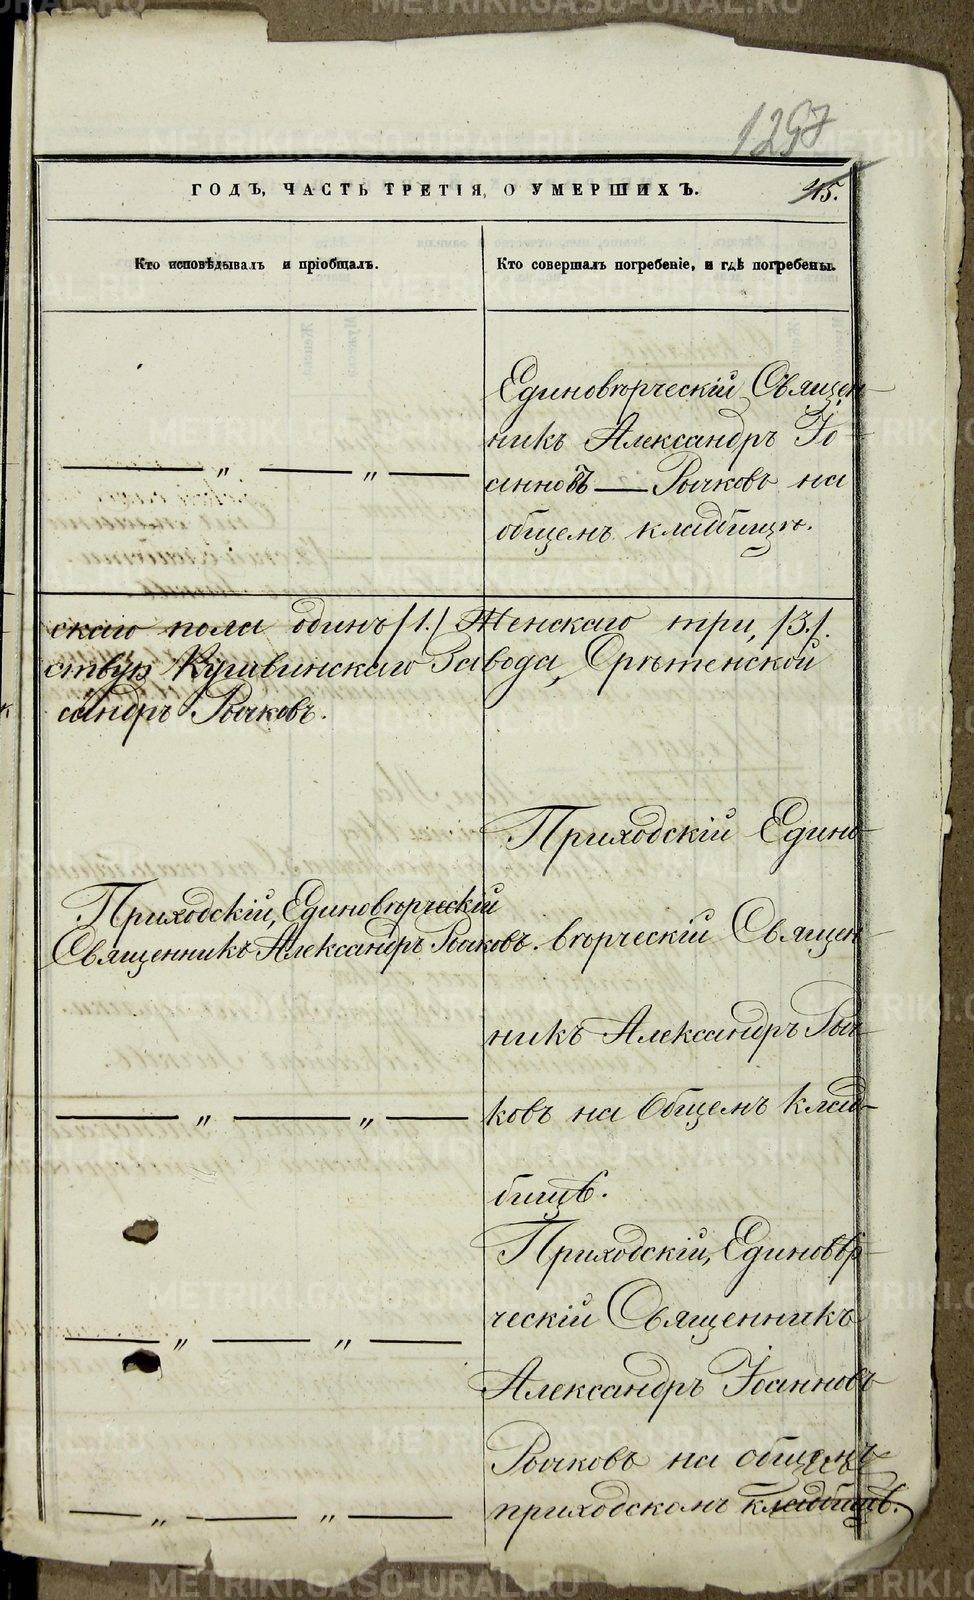 1297
ГОДЪ, ЧАСТЬ ТРЕТІЯ, О УМЕРШИХЪ.
45.
Кто исповѣдывалъ и пріобщалъ.
Кто совершалъ погребеніе, и гдѣ погребены.
Единовѣрческій Священ-
никъ Александръ Іо-
анновъ — Рычковъ на
общемъ кладбищѣ.
— „ — „ —
скаго пола одинъ /1./ Женскаго три, /3./.
ствую Кушвинскаго Завода, Срѣтенской
сандръ Рычковъ.
Приходскій, Единовѣрческій
Священникъ Александръ Рычковъ.
Приходскій Едино-
вѣрческій Священ-
никъ Александръ Рыч-
ковъ на Общемъ клад-
бищѣ.
— „ — „ —
Приходскій, Единовѣр-
ческій Священникъ
Александръ Іоанновъ
Рычковъ на общемъ
приходскомъ кладбищѣ.
— „ — „ —
— „ — „ —
METRIKI.GASO-URAL.RU